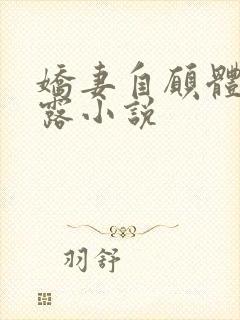 嬌妻自願體
露小說
羽舒